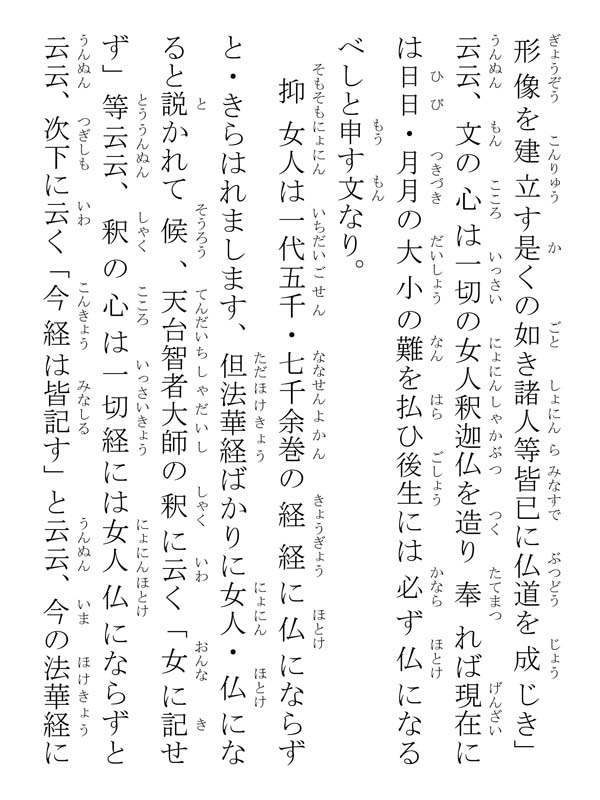 形像を建立す是くの如き諸人等皆已に仏道を成じき」
云云、文の心は一切の女人釈迦仏を造り奉れば現在に
は日日・月月の大小の難を払ひ後生には必ず仏になる
べしと申す文なり。
抑女人は一代五千・七千余巻の経経に仏にならず
と・きらはれまします、但法華経ばかりに女人・仏にな
ると説かれて候、天台智者大師の釈に云く「女に記せ
ず」等云云、釈の心は一切経には女人仏にならずと
云云、次下に云く「今経は皆記す」と云云、今の法華経に